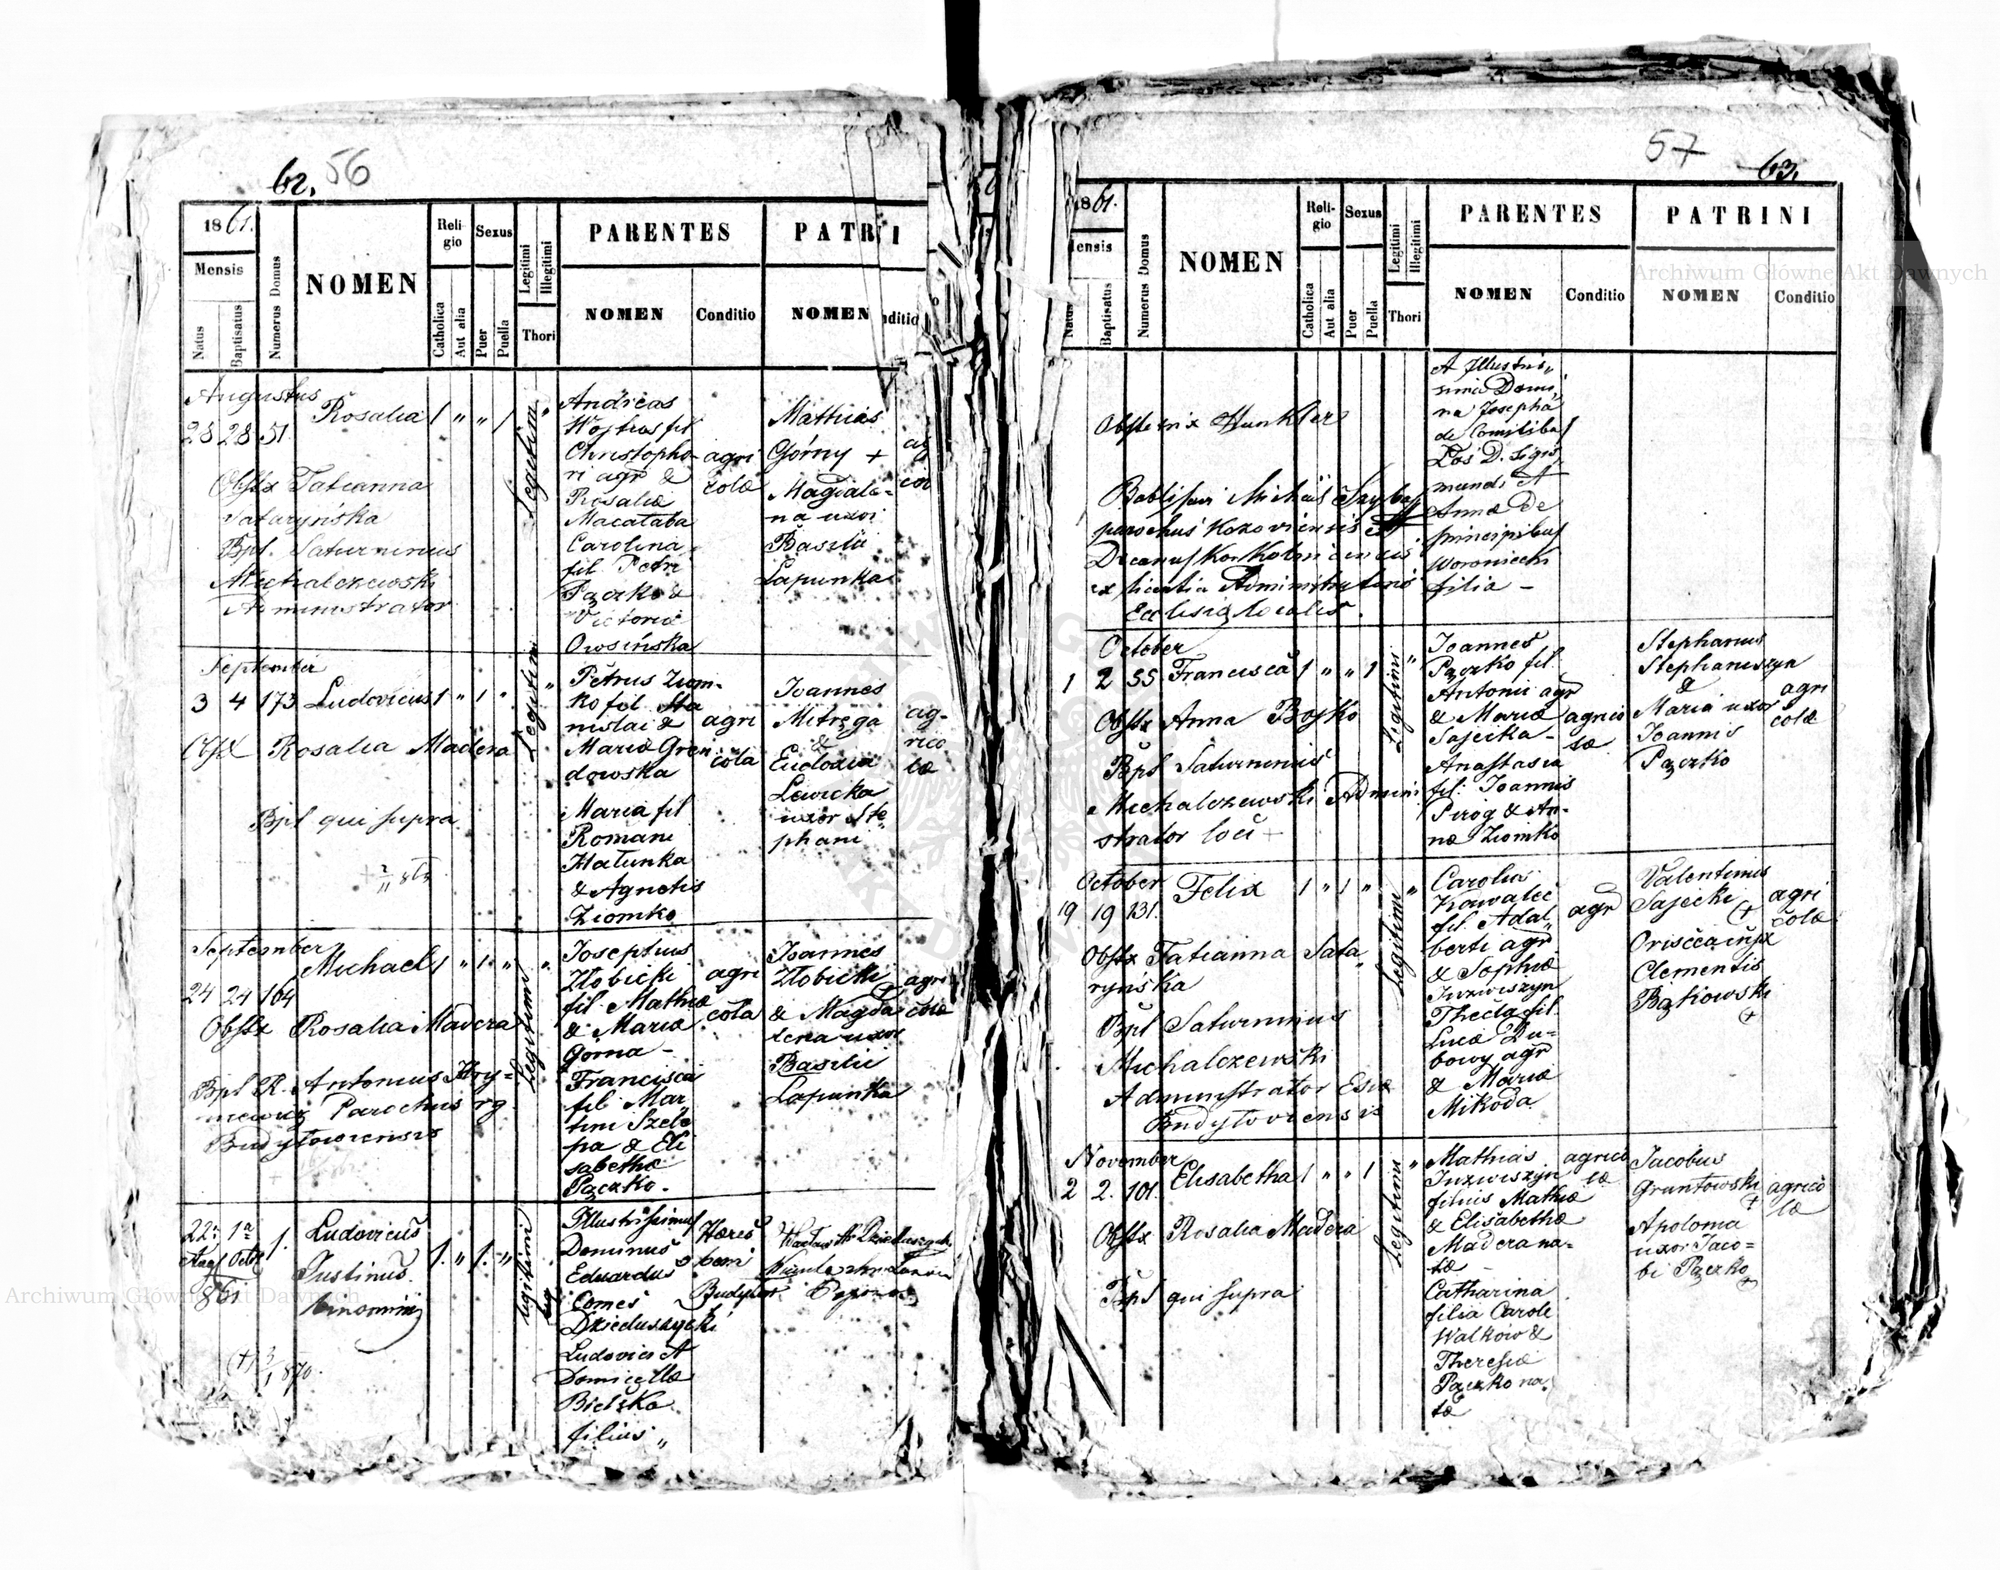 62. 56
1861.
Mensis
Natus
Baptisatus
Numerus Domus
NOMEN
Religio
Catholica
Aut alia
Sexus
Puer
Puella
Legitimi
Illegitimi
Thori
PARENTES
NOMEN
Conditio
PATRINI
NOMEN
Augustus
28 28 51 Rosalia 1 " " 1
Obstx Tatianna
Bpt. Saturninus
Michalczewski
Administrator
Legitimi "
Andreas
Wojtas fil
Christopho-
ri agr &
Rosaliæ
Macałaba
Carolina
fil Petri
Pączko &
Victoriæ
Owsińska
agri
colæ
Mathias
Górny +
Magdale-
na uxor
Basilii
Łapunka
September
3 4 173 Ludovicus 1 " 1 "
Obstx Rosalia Madera
Bpt qui supra
Legitimi "
Petrus Ziom-
ko fil Sta
nislai &
Mariæ Gren
dowska
Maria fil
Romani
Hałunka
& Agnetis
Ziomko
agri
cola
Joannes
Mitręga
&
Eudoxia
Lewicka
uxor Ste
phani
ag-
rico
læ
September
24 24 164 Michael 1 " 1 "
Obstx Rosalia Madera
Bpt R. Antonius
Parochus
Legitimi "
Josephus
Złobicki
fil Mathiæ
& Mariæ
Górna -
Francisca
fil Mar
tini Szele
pa & Eli
sabethæ
Pączko.
agri
cola
Joannes
Złobicki
& Magda
lena uxor
Basilii
Łapunka
agri
colæ
22. 1a 1. Ludovicus 1. " 1. "
Aug Octo Justinus
861
(+) 3/1 870.
legitimi
Illustrissimus
Dominus
Eduardus
Comes
Dzieduszycki
Ludovici et
Domicellæ
Bielska
filius "
Hæres
boni
57 63.
1861.
Mensis
Natus
Baptisatus
Numerus Domus
NOMEN
Religio
Catholica
Aut alia
Sexus
Puer
Puella
Legitimi
Illegitimi
Thori
PARENTES
NOMEN
Conditio
PATRINI
NOMEN
Conditio
Obstetrix Hunkler
parochus Kozoviensis et
ex licentia Administratoris
Ecclesiæ localis.
A Illustris,,
sima Domi,
na Josepha
de Comitibus
Łoś D. Sigis,
mundi et
Annæ De
principibus
Woroniecki
filia -
October
1 2 55 Francisca 1 " " 1
Obstx Anna Bojko
Bpt Saturninus
Michalczewski Admini
strator loci +
Legitimi "
Joannes
Pączko fil.
Antonii agr
& Mariæ
Sajecka -
Anastasia
fil: Joannis
Pirog & An-
næ Ziomko
agrico
læ
Stephanus
Stephaniszyn
&
Maria uxor
Joannis
Pączko
agri
colæ
October
19 19 131. Felix 1 " 1 "
Obstx Tatianna Sata
ryńska
Bpt Saturninus
Michalczewski
Administrator Eslæ
Budyłoviensis
Legitimi "
Carolus
Kowalec
fil. Adal,,
berti agr
& Sophiæ
Juzwiszyn
Thecla fil.
Lucæ Du-
bowy agr
& Mariæ
Mikoda
agr
Valentinus
Sajecki (+)
Clementis
Bątkowski
+
agri
colæ
November
2 2. 101. Elisabetha 1 " " 1
Obstx Rosalia Madera
Bpt qui supra
Legitimi "
Mathias
Juzwiszyn
filius Mathiæ
& Elisabethæ
Madera na-
tæ -
Catharina
filia Caroli
Walkow &
Theresiæ
Pączko na,
tæ
agrico
læ
Jacobus
Gruntowski
+
Apolonia
uxor Jaco-
bi Pączko
+
agrico
læ
Archiwum Główne Akt Dawnych
Archiwum Główne Akt Dawnych